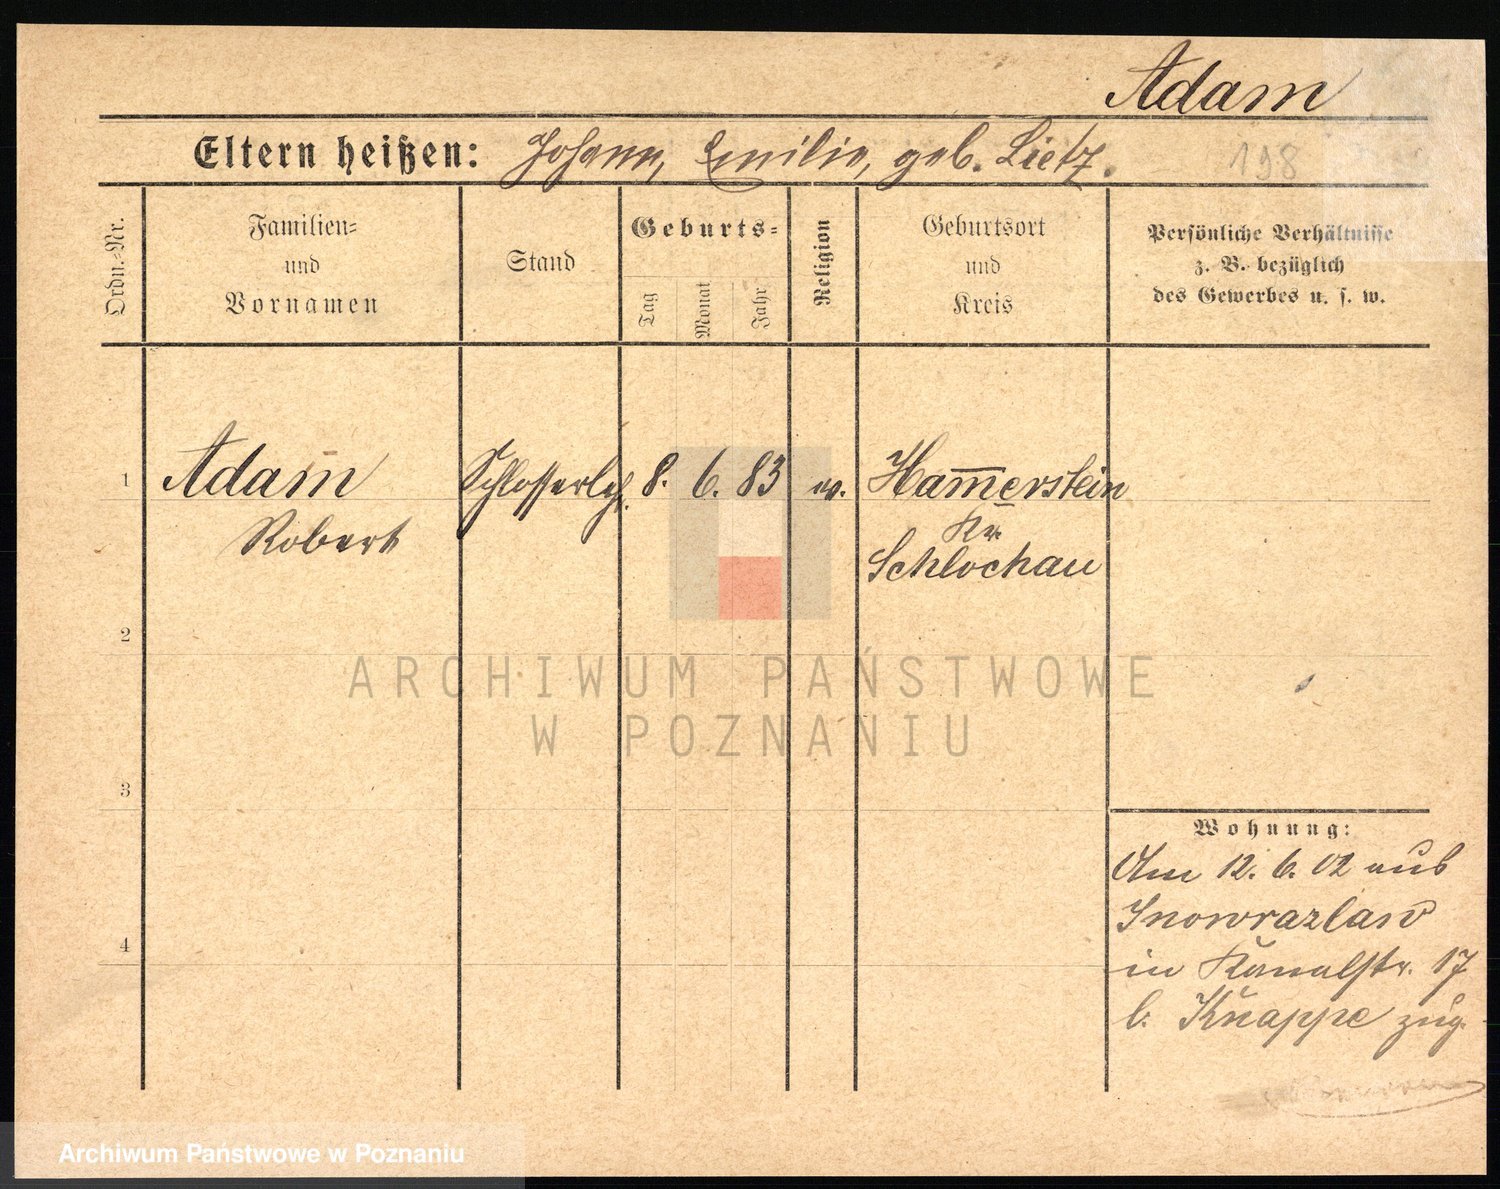 Adam
Eltern heißen: Johann, Emilie, geb. Lietz.
198
Ordn.-Nr.
Familien-
und
Vornamen
Stand
Geburts-
Tag
Monat
Jahr
Religion
Geburtsort
und
Kreis
Persönliche Verhältnisse
z. B. bezüglich
des Gewerbes u. s. w.
1
Adam̅
Robert
Schlosserlehr.
8. 6. 83
Ham̅erstein
Kr.
Schlochau
2
ARCHIWUM PAŃSTWOWE
W POZNANIU
3
Wohnung:
Am 12. 6. 02 aus
Inowrazlaw
in Kanalstr. 17
b. Knappe zug.
4
Archiwum Państwowe w Poznaniu